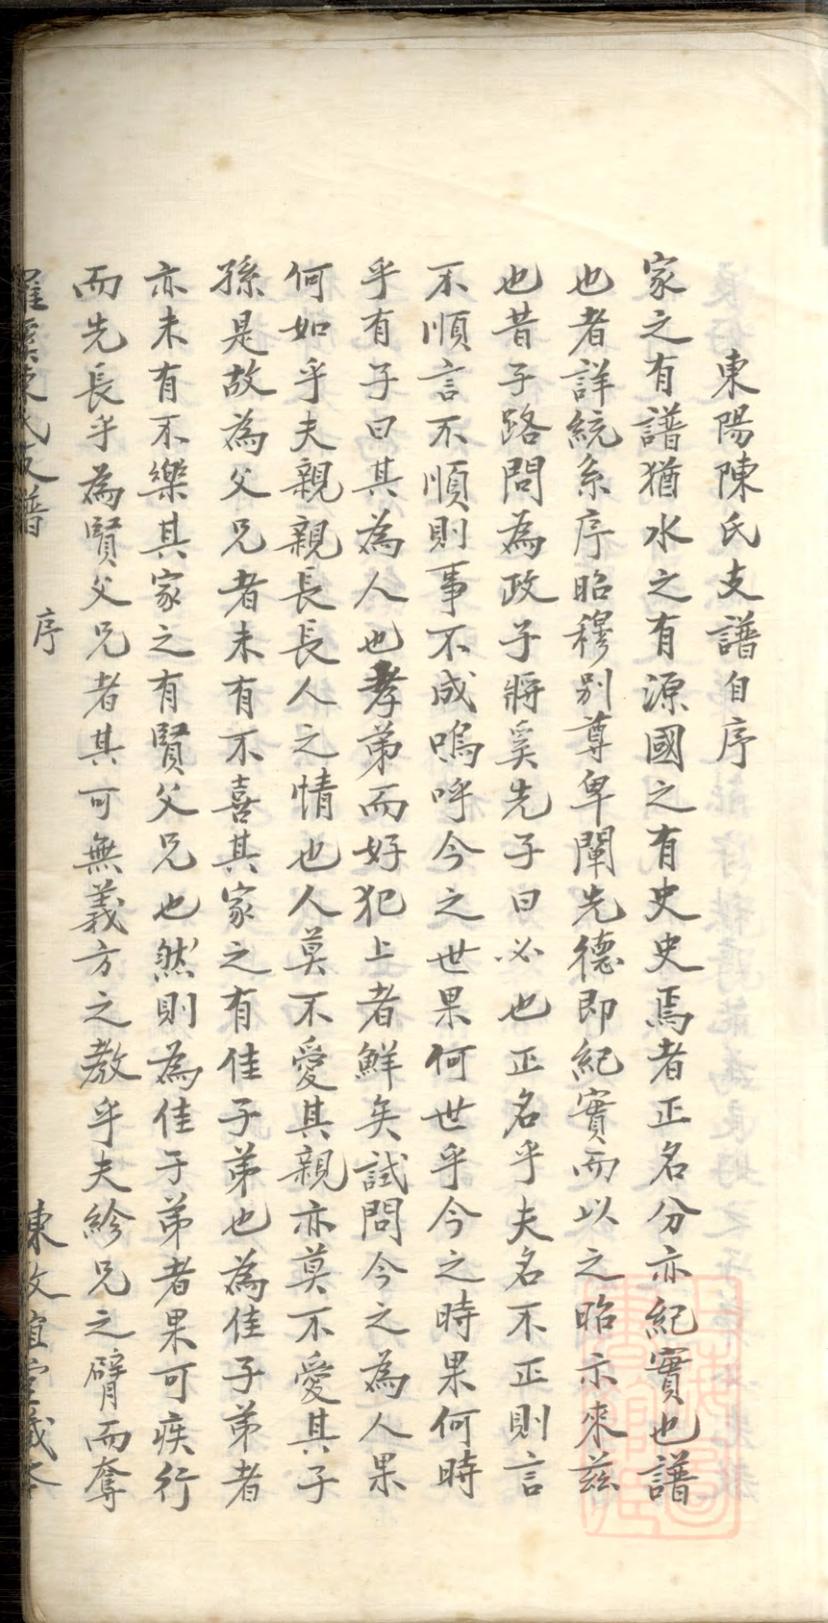 東陽陳氏支譜自序
家之有譜猶水之有源國之有史史焉者正名分亦紀實也譜
也者詳統系序昭穆別尊卑闡先德即紀實而以之昭示來茲
也昔子路問為政子將奚先子曰必也正名乎夫名不正則言
不順言不順則事不成嗚呼今之世果何世乎今之時果何時
乎有子曰其為人也孝弟而好犯上者鮮矣試問今之為人果
何如乎夫親親長長人之情也人莫不愛其親亦莫不愛其子
孫是故為父兄者未有不喜其家之有佳子弟也為佳子弟者
亦未有不樂其家之有賢父兄也然則為佳子弟者果可疾行
而先長乎為賢父兄者其可無義方之教乎夫紾兄之臂而奪
陳氏支譜 序